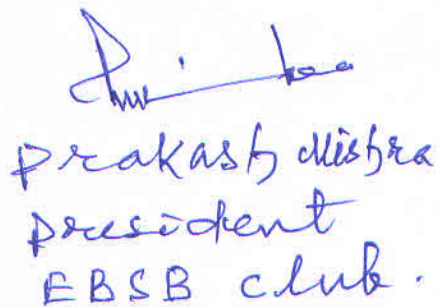 Prakash Mishra
President
EBSB club.